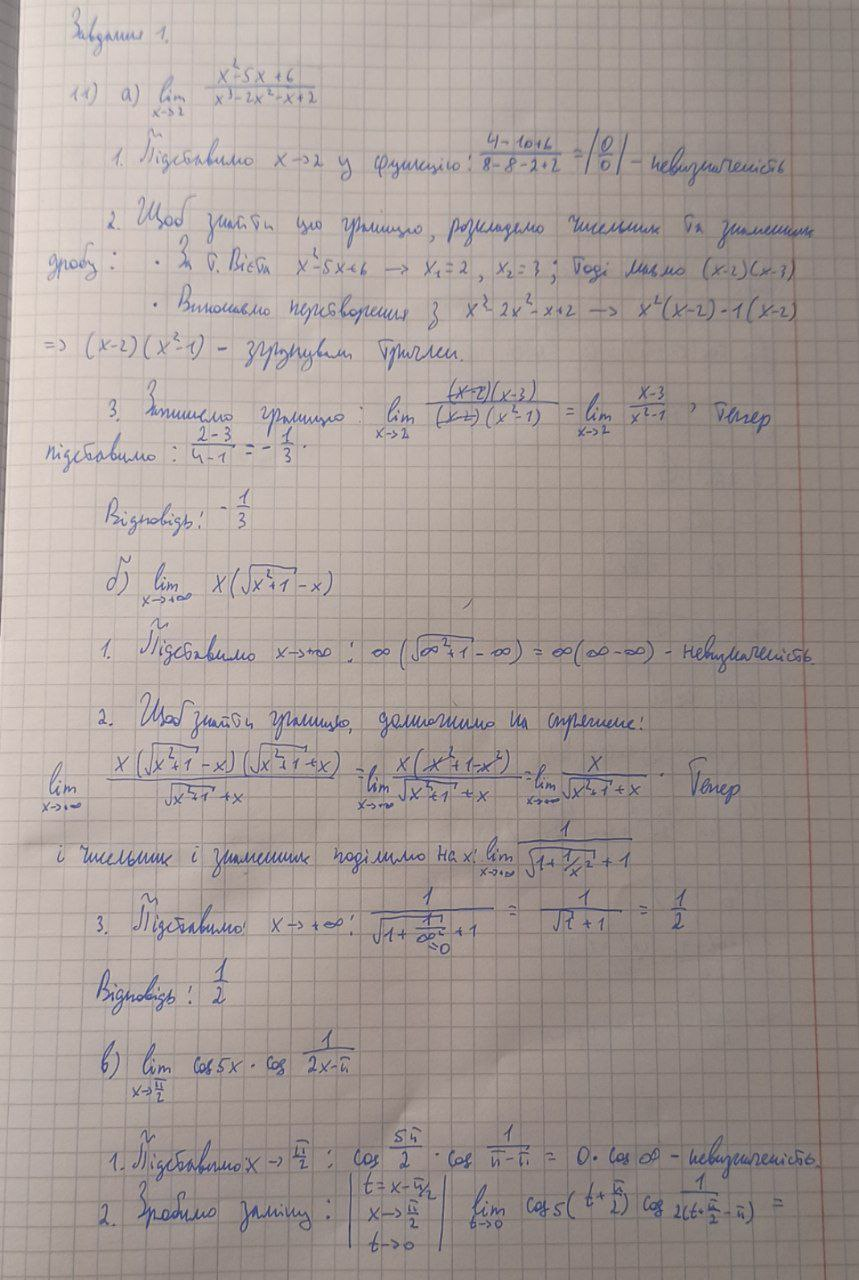 Завдання 1.
1.1) а) lim x→2 (x²-5x+6)/(x³-2x²-x+2)
1. Підставимо x→2 у функцію: (4-10+6)/(8-8-2+2) = |0/0| - невизначеність
2. Щоб знайти цю границю, розкладемо чисельник та знаменник
дробу: • За т. Вієта x²-5x+6 → x₁=2, x₂=3; Тоді маємо (x-2)(x-3)
• Виконаємо перетворення з x³-2x²-x+2 → x²(x-2)-1(x-2)
=> (x-2)(x²-1) - згрупували
3. Запишемо границю: lim x→2 ((x-2)(x-3))/((x-2)(x²-1)) = lim x→2 (x-3)/(x²-1), Тепер
підставимо: (2-3)/(4-1) = -1/3.
Відповідь: -1/3
б) lim x→+∞ x(√(x²+1)-x)
1. Підставимо x→+∞: ∞(√(∞²+1)-∞) = ∞(∞-∞) - невизначеність.
2. Щоб знайти границю, домножимо на спряжене:
lim x→+∞ (x(√(x²+1)-x)(√(x²+1)+x))/(√(x²+1)+x) = lim x→+∞ (x(x²+1-x²))/(√(x²+1)+x) = lim x→+∞ x/(√(x²+1)+x). Тепер
і чисельник і знаменник поділимо на x: lim x→+∞ 1/(√(1+1/x²)+1)
3. Підставимо x→+∞: 1/(√(1+1/∞²)+1) = 1/(√1+1) = 1/2
=0
Відповідь: 1/2
в) lim x→π/2 cos5x · cos 1/(2x-π)
1. Підставимо x→π/2: cos 5π/2 · cos 1/(π-π) = 0·cos∞ - невизначеність.
2. Зробимо заміну: | t=x-π/2 x→π/2 t→0 | lim t→0 cos5(t+π/2) cos 1/(2(t+π/2)-π) =